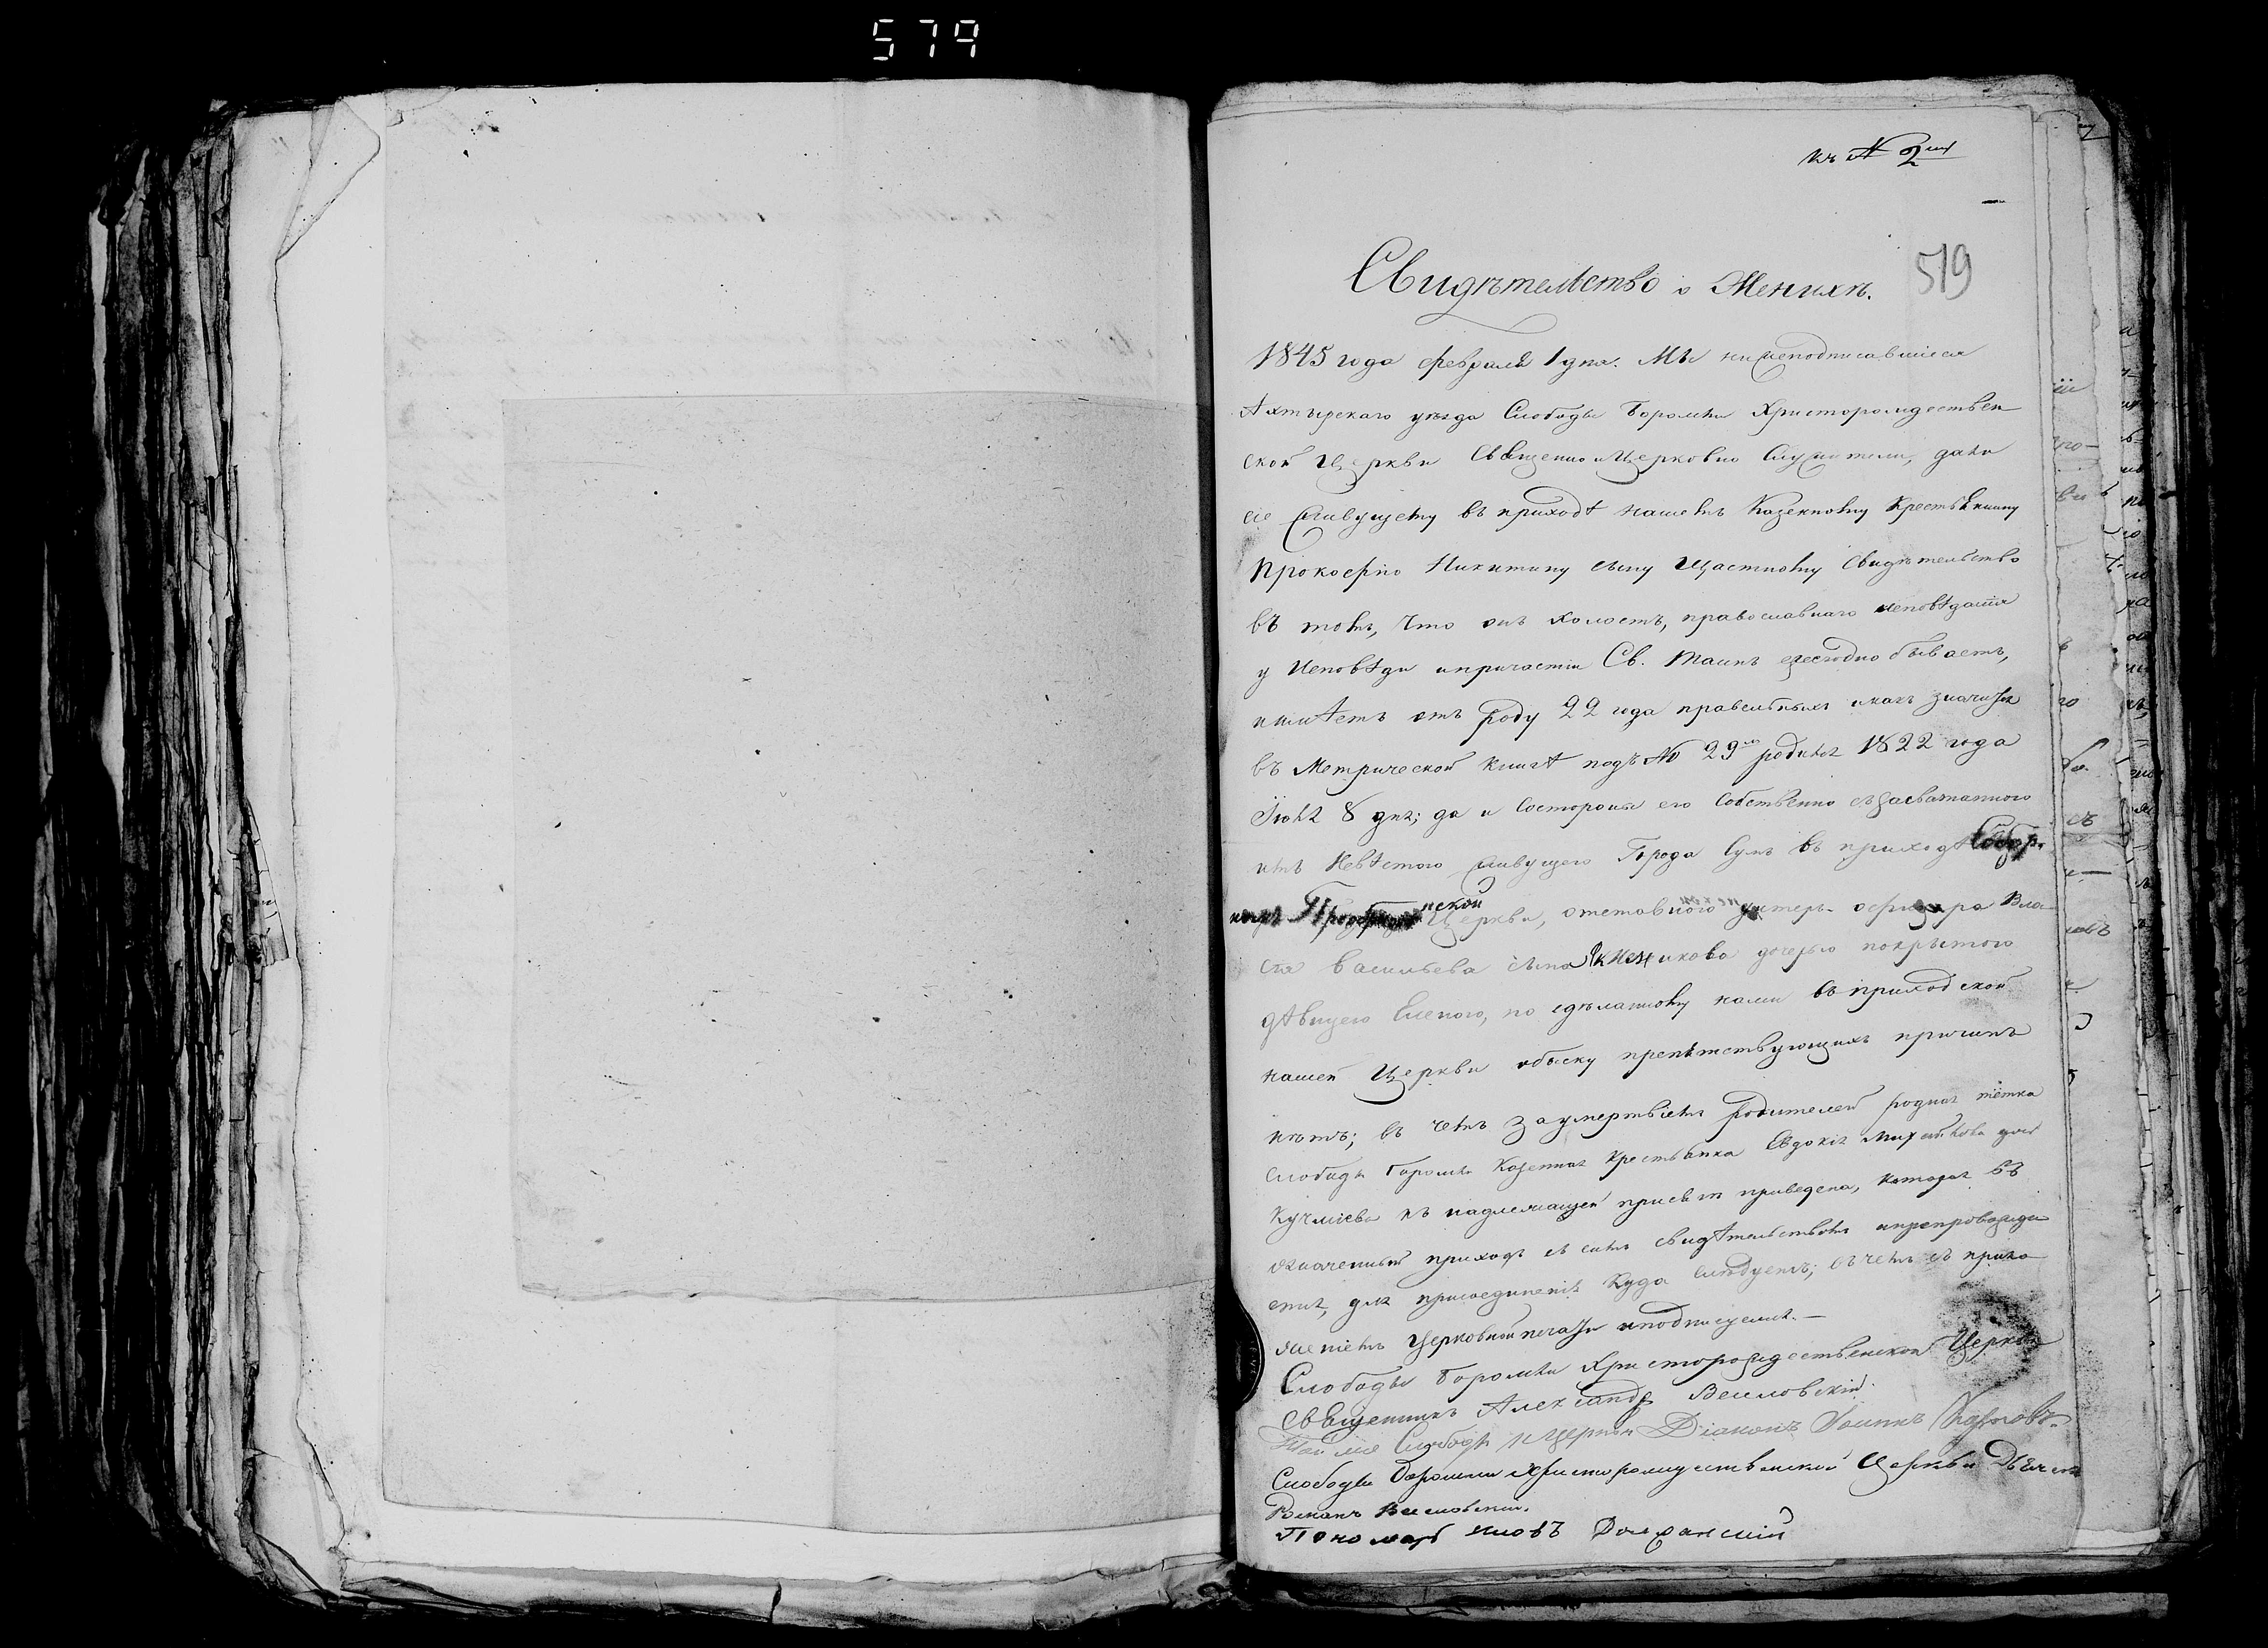 579
къ № 2му
519
Свидѣтельство о Женихѣ.
1845 года февраля 1 дня. Мы нижеподписавшіеся
Ахтырскаго уѣзда Слободы Боромли Христорождествен
ской Церкви Священно и Церковно Служители, дали
сіе живущему въ приходѣ нашемъ Казенному Крестьянину
Прокофію Никитину сыну Щастному Свидѣтельство
въ томъ, что онъ холостъ, православнаго исповѣданія
у Исповѣди и причастія Св. Таинъ ежегодно бываетъ,
имѣетъ отъ роду 22 года правильныхъ и какъ значится
въ Метрической книгѣ подъ № 29мъ родился 1822 года
Іюля 8 дня; да и состороны его собственно съ засватанною
имъ Невѣстою живущею Города Сумъ въ приходѣ Собор
нской Церкви, отставного унтеръ-офицера Вла
сія Васильева сына дочерью покрытою
дѣвицею Еленою, по сдѣланному нами въ приходской
нашей Церкви обыску препятствующихъ причинъ
нѣтъ; въ чемъ за умертвіемъ родителей родная тётка
слободы Боромли Казенная Крестьянка Евдокія Михайлова дочь
къ надлежащей присягѣ приведена, которая въ
означенный приходъ съ симъ свидѣтельствомъ и препровожда
ется, для присоединенія куда слѣдуетъ; въ чемъ съ прило
женіемъ Церковной печати и подписуемся.—
Слободы Боромли Христорождественской Церкви
Священникъ Александръ Веселовскій.
Той же Слободы и Церкви Діаконъ Іоаннъ
Слободы Боромли Христорождественской Церкви Дьячокъ
Романъ Веселовскій.
Пономарь